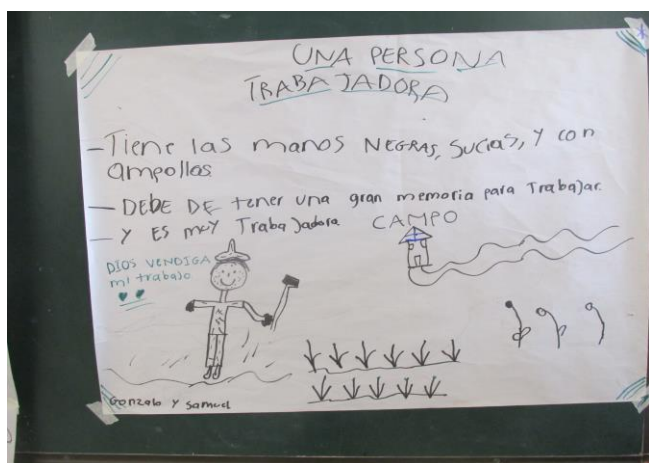 UNA PERSONA
TRABAJADORA
- Tiene las manos NEGRAS, SUCIAS, Y con
ampollas
- DEBE DE tener una gran memoria para Trabajar.
- Y ES muy Trabajadora.
CAMPO
DIOS VENDIGA
mi trabajo
Gonzalo y Samuel